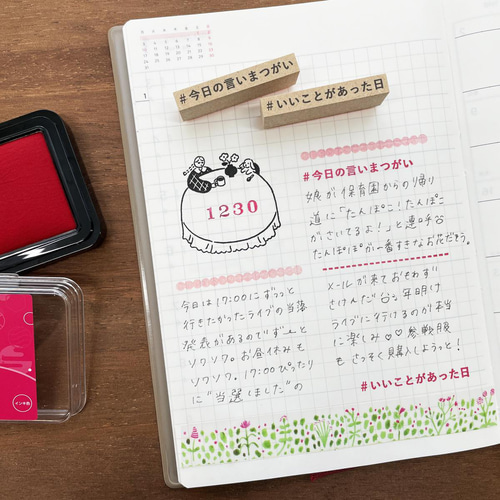 1
#今日の言いまつがい
#いいことがあった日
1230
#今日の言いまつがい
娘が保育園からの帰り
道に「たんぽこ!たんぽこ
がさいてるよ!」と連呼
たんぽぽが一番すきなお花だそう。
今日は17:00にずっっと
行きたかったライブの当落
発表があるのでず〜っと
ソワソワ。お昼休みも
ソワソワ。17:00ぴったり
に"当選しました"の
メールが来ておもわず
さけんだ 年明け
ライブに行けるのが本当
に楽しみ♡♡参戦服
もさっそく購入しようっと!
#いいことがあった日
インキ色